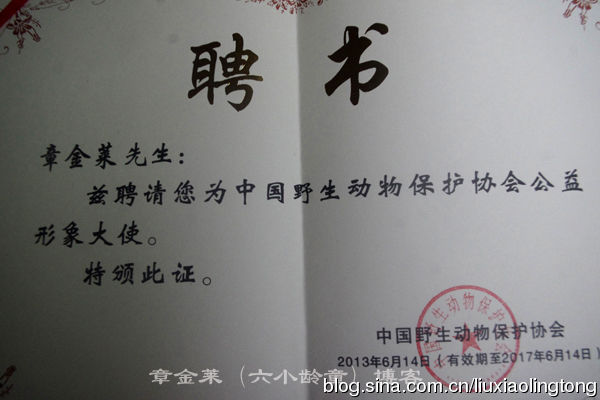 聘书
章金莱先生：
兹聘请您为中国野生动物保护协会公益
形象大使。
特颁此证。
中国野生动物保护协会
中国野生动物保护协会
2013年6月14日（有效期至2017年6月14日）
章金莱（六小龄童）博客
blog.sina.com.cn/liuxiaolingtong